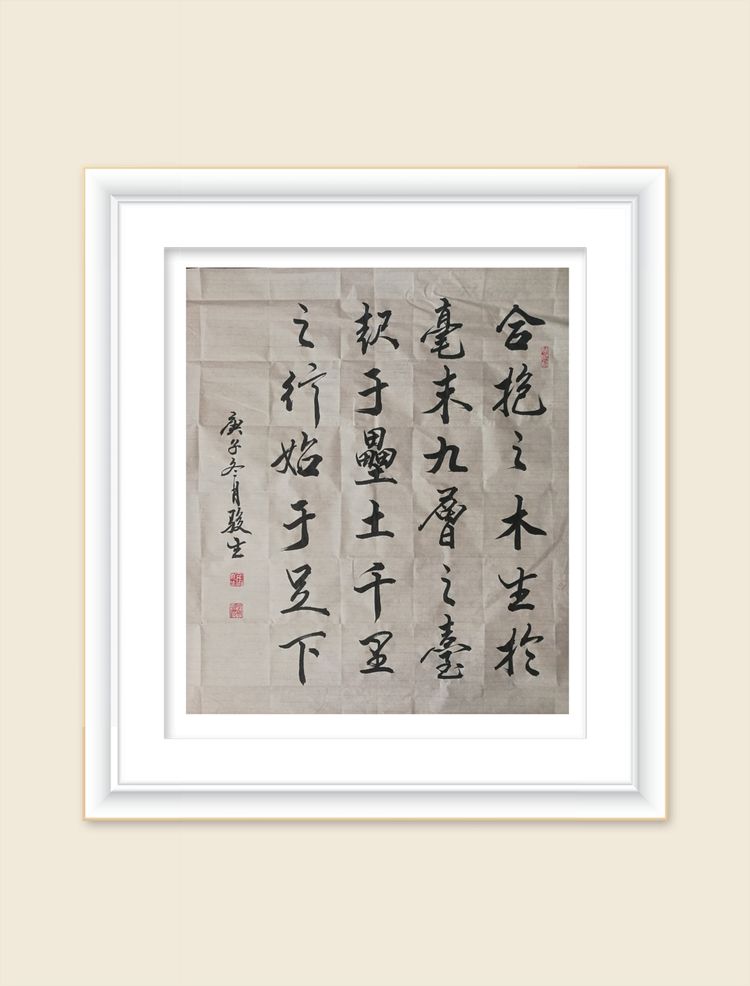 合抱之木生於
毫末九層之臺
起于壘土千里
之行始于足下
庚子冬月駿生